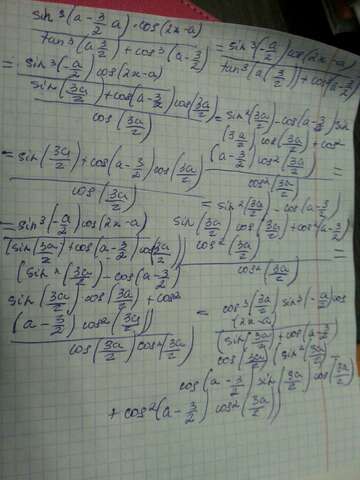 sin³(a-3/2 a)·cos(2x-a) / tan³(a 3/2)+cos³(a-3/2) = sin³(-a/2)cos(2x-a) / tan³(a(3/2))+cos³(a-3/2)
= sin³(-a/2)cos(2x-a) / sin(3a/2)+cos(a-3/2)cos(3a/2) / cos(3a/2)
= sin²(3a/2)-cos(a-3/2)sin
(3a/2)cos(3a/2)+cos²
(a-3/2)cos²(3a/2) / cos²(3a/2) =
= sin(3a/2)+cos(a-3/2)cos(3a/2) / cos(3a/2)
= sin²(3a/2)-cos(a-3/2)
sin(3a/2)cos(3a/2)+cos²(a-3/2)
cos²(3a/2) / cos²(3a/2) =
= sin³(-a/2)cos(2x-a)
(sin(3a/2)+cos(a-3/2)cos(3a/2))
(sin²(3a/2)-cos(a-3/2)
sin(3a/2)cos(3a/2)+cos²
(a-3/2)cos²(3a/2)) / cos(3a/2)cos²(3a/2)
= cos³(3a/2)sin³(-a/2)cos
(2x-a)
(sin(3a/2)+cos(a-3/2)
cos(3a/2))(sin²(3a/2)-
cos(a-3/2)sin(3a/2)cos(3a/2)
+cos²(a-3/2)cos²(3a/2))